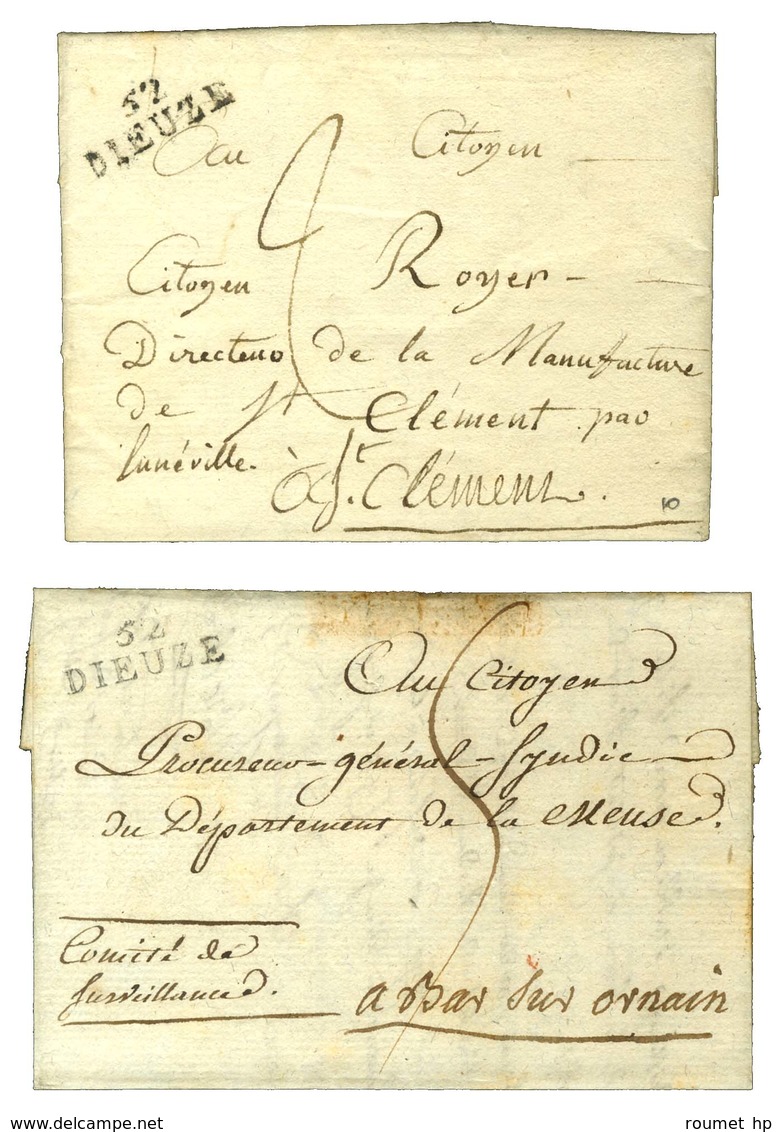 52
DIEUZE
Au Citoyen
Citoyen Royer
Directeur de la Manufacture
de St Clément par
Lunéville. à St. Clément.
10
52
DIEUZE
Au Citoyen
Procureur-général-Syndic
du Département de la Meuse.
Comité de
Surveillance.
a Bar sur ornain
© roumet hp